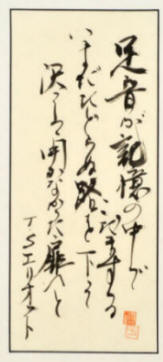 足音が記憶の中で
こだまする
いまだたどらぬ路を下り
決して開かなかった扉へと
TSエリオット